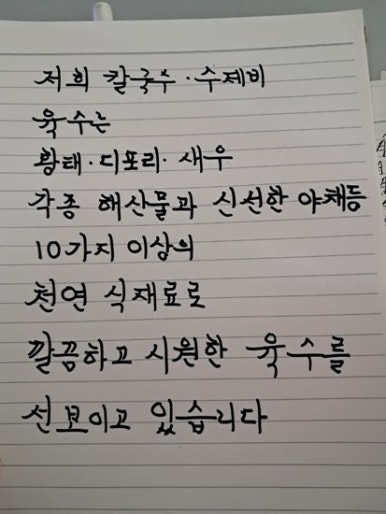 저희 칼국수·수제비
육수는
황태·디포리·새우
각종 해산물과 신선한 야채등
10가지 이상의
천연 식재료로
깔끔하고 시원한 육수를
선보이고 있습니다